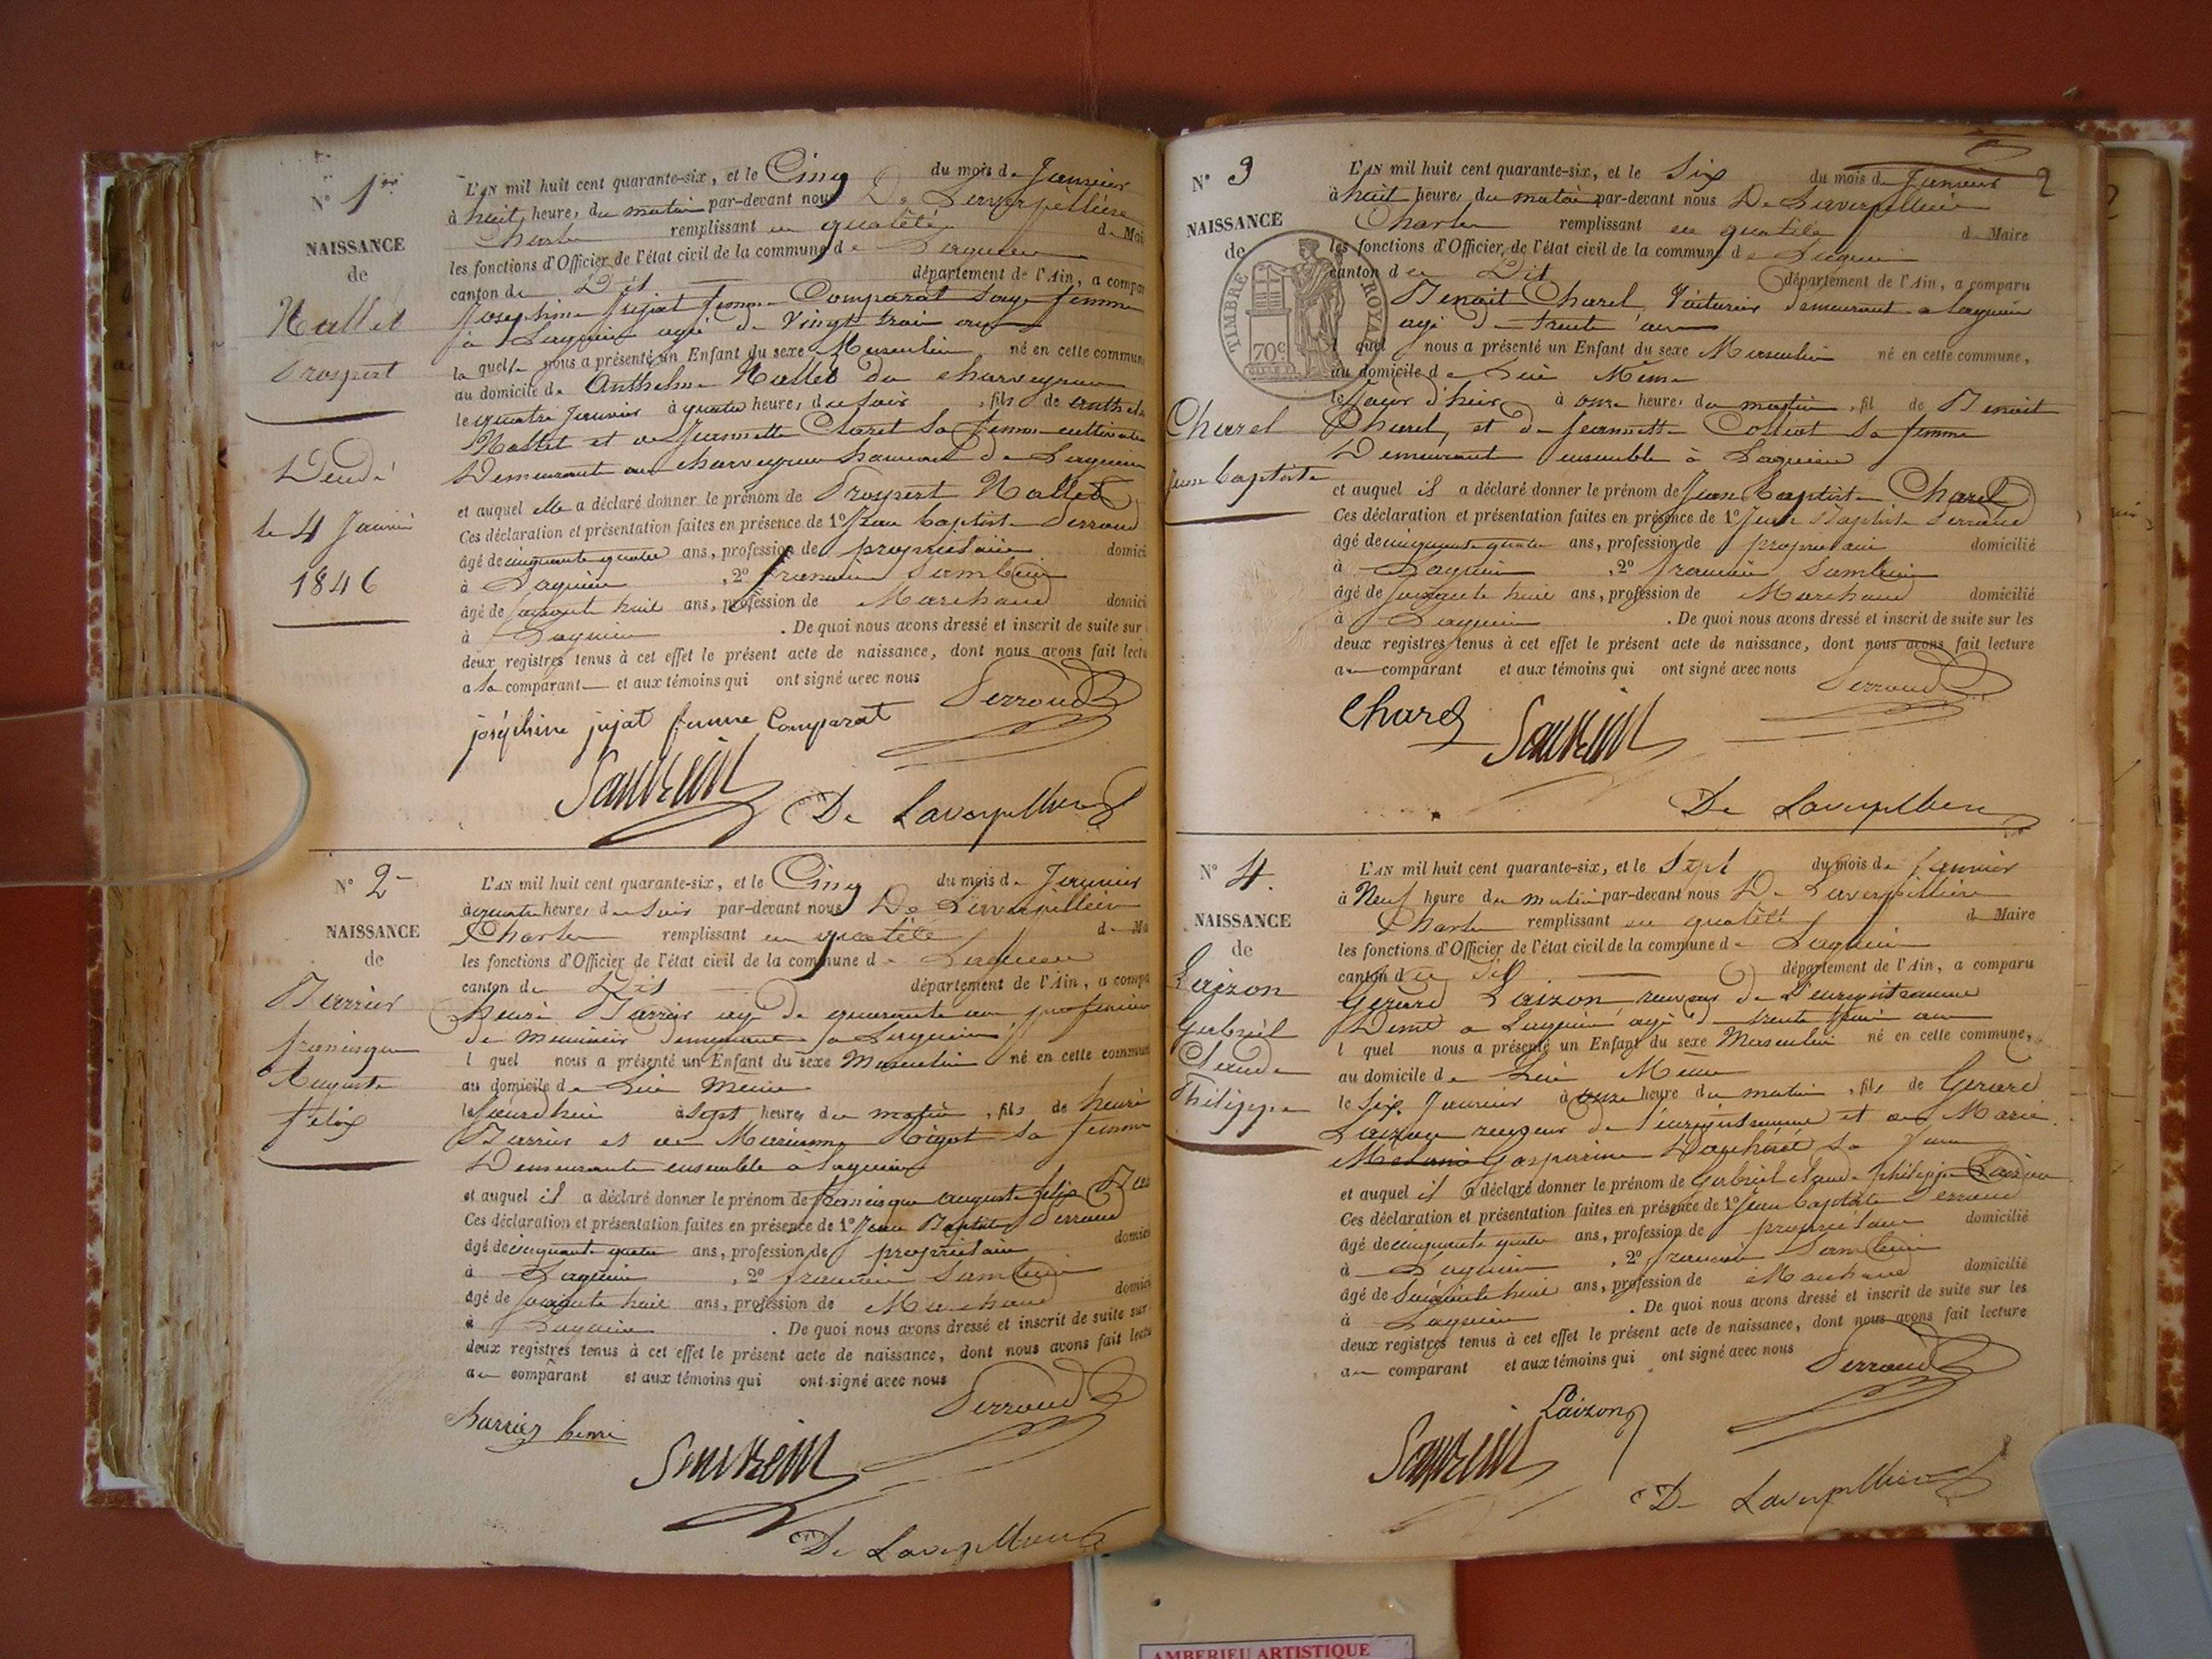 N° 1er
NAISSANCE
de
Nallet
Prospert
Décédé
le 4 Janvier
1846
L'AN mil huit cent quarante-six, et le Cinq du mois de Janvier
à huit heures du matin par-devant nous De Laverpellière
Charles remplissant en qualité de Mai
les fonctions d'Officier de l'état civil de la commune de Lagnieu
canton de Dit département de l'Ain, a compa
Josephine Jujat femme Comparat Sage femme
à Lagnieu agé de Vingt trois ans
la quelle nous a présenté un Enfant du sexe Masculin né en cette commun
au domicile de Anthelme Nallet du charveyron
le quatre Janvier à quatre heures du soir, fils de Anthel
Nallet et de Jeannette Claret sa femme cultivate
Demeurant au charveyron hameau de Lagnieu
et auquel elle a déclaré donner le prénom de Prospert Nallet
Ces déclaration et présentation faites en présence de 1° Jean baptiste Perroud
âgé de cinquante quatre ans, profession de propriétaire domici
à Lagnieu, 2° francois
âgé de soixante huit ans, profession de Marchand domici
à Lagnieu. De quoi nous avons dressé et inscrit de suite sur
deux registres tenus à cet effet le présent acte de naissance, dont nous avons fait lectu
a la comparant et aux témoins qui ont signé avec nous
Perroud
joséphine jujat femme Comparat
De Laverpellière
N° 2
NAISSANCE
de
Barrier
francisque
Auguste
félix
L'AN mil huit cent quarante-six, et le Cinq du mois de Janvier
à quatre heures du soir par-devant nous De Laverpellière
Charles remplissant en qualité de Ma
les fonctions d'Officier de l'état civil de la commune de Lagnieu
canton de Dit département de l'Ain, a compa
henri Barrier agé de quarante ans profession
de menuisier demeurant à Lagnieu
l quel nous a présenté un Enfant du sexe Masculin né en cette commun
au domicile de Lui Même
le jourdhui à sept heures du matin, fils de henri
Barrier et de Marianne Rigot sa femme
Demeurants ensemble à Lagnieu
et auquel il a déclaré donner le prénom de francisque auguste felix Bar
Ces déclaration et présentation faites en présence de 1° Jean Baptiste Perroud
âgé de cinquante quatre ans, profession de propriétaire domici
à Lagnieu, 2° francois
âgé de soixante huit ans, profession de Marchand domici
à Lagnieu. De quoi nous avons dressé et inscrit de suite sur
deux registres tenus à cet effet le présent acte de naissance, dont nous avons fait lectu
au comparant et aux témoins qui ont signé avec nous
Perroud
barrier henri
De Laverpellière
2
N° 3
NAISSANCE
de
TIMBRE ROYAL
70c
Charel
Jean baptiste
L'AN mil huit cent quarante-six, et le Six du mois de Janvier
à huit heures du matin par-devant nous De Laverpellière
Charles remplissant en qualité de Maire
les fonctions d'Officier de l'état civil de la commune de Lagnieu
canton de Dit département de l'Ain, a comparu
Benoit Charel, Voiturier demeurant a lagnieu
agé de trente ans
l quel nous a présenté un Enfant du sexe Masculin né en cette commune,
au domicile de Lui Même
le jour d'hier à onze heures du matin, fil de Benoit
Charel, et de Jeannette Collet sa femme
Demeurants ensemble à Lagnieu
et auquel il a déclaré donner le prénom de Jean baptiste Charel
Ces déclaration et présentation faites en présence de 1° Jean Baptiste Perroud
âgé de cinquante quatre ans, profession de propriétaire domicilié
à Lagnieu, 2° francois
âgé de soixante huit ans, profession de Marchand domicilié
à Lagnieu. De quoi nous avons dressé et inscrit de suite sur les
deux registres tenus à cet effet le présent acte de naissance, dont nous avons fait lecture
au comparant et aux témoins qui ont signé avec nous
Perroud
Charel
De Laverpellière
N° 4.
NAISSANCE
de
Laizon
Gabriel
Claude
Philippe
L'AN mil huit cent quarante-six, et le Sept du mois de Janvier
à Neuf heure du matin par-devant nous De Laverpellière
Charles remplissant en qualité de Maire
les fonctions d'Officier de l'état civil de la commune de Lagnieu
canton de Dit département de l'Ain, a comparu
Gerard Laizon receveur de L'enregistrement
Demt a Lagnieu agé de trente ans
l quel nous a présenté un Enfant du sexe Masculin né en cette commune,
au domicile de Lui Même
le Six Janvier à onze heure du matin, fils de Gerard
Laizon receveur de l'enregistrement et de Marie
Melanie Gasparine sa femme
et auquel il a déclaré donner le prénom de Gabriel claude philippe Laizon
Ces déclaration et présentation faites en présence de 1° Jean baptiste Perroud
âgé de cinquante quatre ans, profession de propriétaire domicilié
à Lagnieu, 2° francois
âgé de Soixante huit ans, profession de Marchand domicilié
à Lagnieu. De quoi nous avons dressé et inscrit de suite sur les
deux registres tenus à cet effet le présent acte de naissance, dont nous avons fait lecture
au comparant et aux témoins qui ont signé avec nous
Perroud
Laizon
De Laverpellière
AMBERIEU ARTISTIQUE